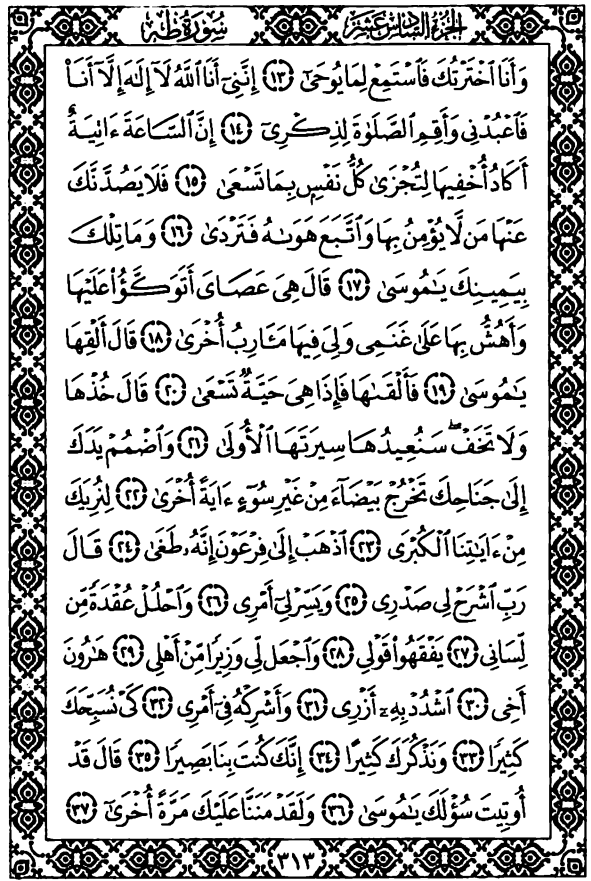 الجزء السادس عشر سورة طه
وَأَنَا ٱخْتَرْتُكَ فَٱسْتَمِعْ لِمَا يُوحَىٰٓ ١٣ إِنَّنِىٓ أَنَا ٱللَّهُ لَآ إِلَٰهَ إِلَّآ أَنَا۠
فَٱعْبُدْنِى وَأَقِمِ ٱلصَّلَوٰةَ لِذِكْرِىٓ ١٤ إِنَّ ٱلسَّاعَةَ ءَاتِيَةٌ
أَكَادُ أُخْفِيهَا لِتُجْزَىٰ كُلُّ نَفْسٍۭ بِمَا تَسْعَىٰ ١٥ فَلَا يَصُدَّنَّكَ
عَنْهَا مَن لَّا يُؤْمِنُ بِهَا وَٱتَّبَعَ هَوَىٰهُ فَتَرْدَىٰ ١٦ وَمَا تِلْكَ
بِيَمِينِكَ يَٰمُوسَىٰ ١٧ قَالَ هِىَ عَصَاىَ أَتَوَكَّؤُا۟ عَلَيْهَا
وَأَهُشُّ بِهَا عَلَىٰ غَنَمِى وَلِىَ فِيهَا مَـَٔارِبُ أُخْرَىٰ ١٨ قَالَ أَلْقِهَا
يَٰمُوسَىٰ ١٩ فَأَلْقَىٰهَا فَإِذَا هِىَ حَيَّةٌ تَسْعَىٰ ٢٠ قَالَ خُذْهَا
وَلَا تَخَفْ ۖ سَنُعِيدُهَا سِيرَتَهَا ٱلْأُولَىٰ ٢١ وَٱضْمُمْ يَدَكَ
إِلَىٰ جَنَاحِكَ تَخْرُجْ بَيْضَآءَ مِنْ غَيْرِ سُوٓءٍ ءَايَةً أُخْرَىٰ ٢٢ لِنُرِيَكَ
مِنْ ءَايَٰتِنَا ٱلْكُبْرَى ٢٣ ٱذْهَبْ إِلَىٰ فِرْعَوْنَ إِنَّهُۥ طَغَىٰ ٢٤ قَالَ
رَبِّ ٱشْرَحْ لِى صَدْرِى ٢٥ وَيَسِّرْ لِىٓ أَمْرِى ٢٦ وَٱحْلُلْ عُقْدَةً مِّن
لِّسَانِى ٢٧ يَفْقَهُوا۟ قَوْلِى ٢٨ وَٱجْعَل لِّى وَزِيرًا مِّنْ أَهْلِى ٢٩ هَٰرُونَ
أَخِى ٣٠ ٱشْدُدْ بِهِۦٓ أَزْرِى ٣١ وَأَشْرِكْهُ فِىٓ أَمْرِى ٣٢ كَىْ نُسَبِّحَكَ
كَثِيرًا ٣٣ وَنَذْكُرَكَ كَثِيرًا ٣٤ إِنَّكَ كُنتَ بِنَا بَصِيرًا ٣٥ قَالَ قَدْ
أُوتِيتَ سُؤْلَكَ يَٰمُوسَىٰ ٣٦ وَلَقَدْ مَنَنَّا عَلَيْكَ مَرَّةً أُخْرَىٰٓ ٣٧
٣١٣